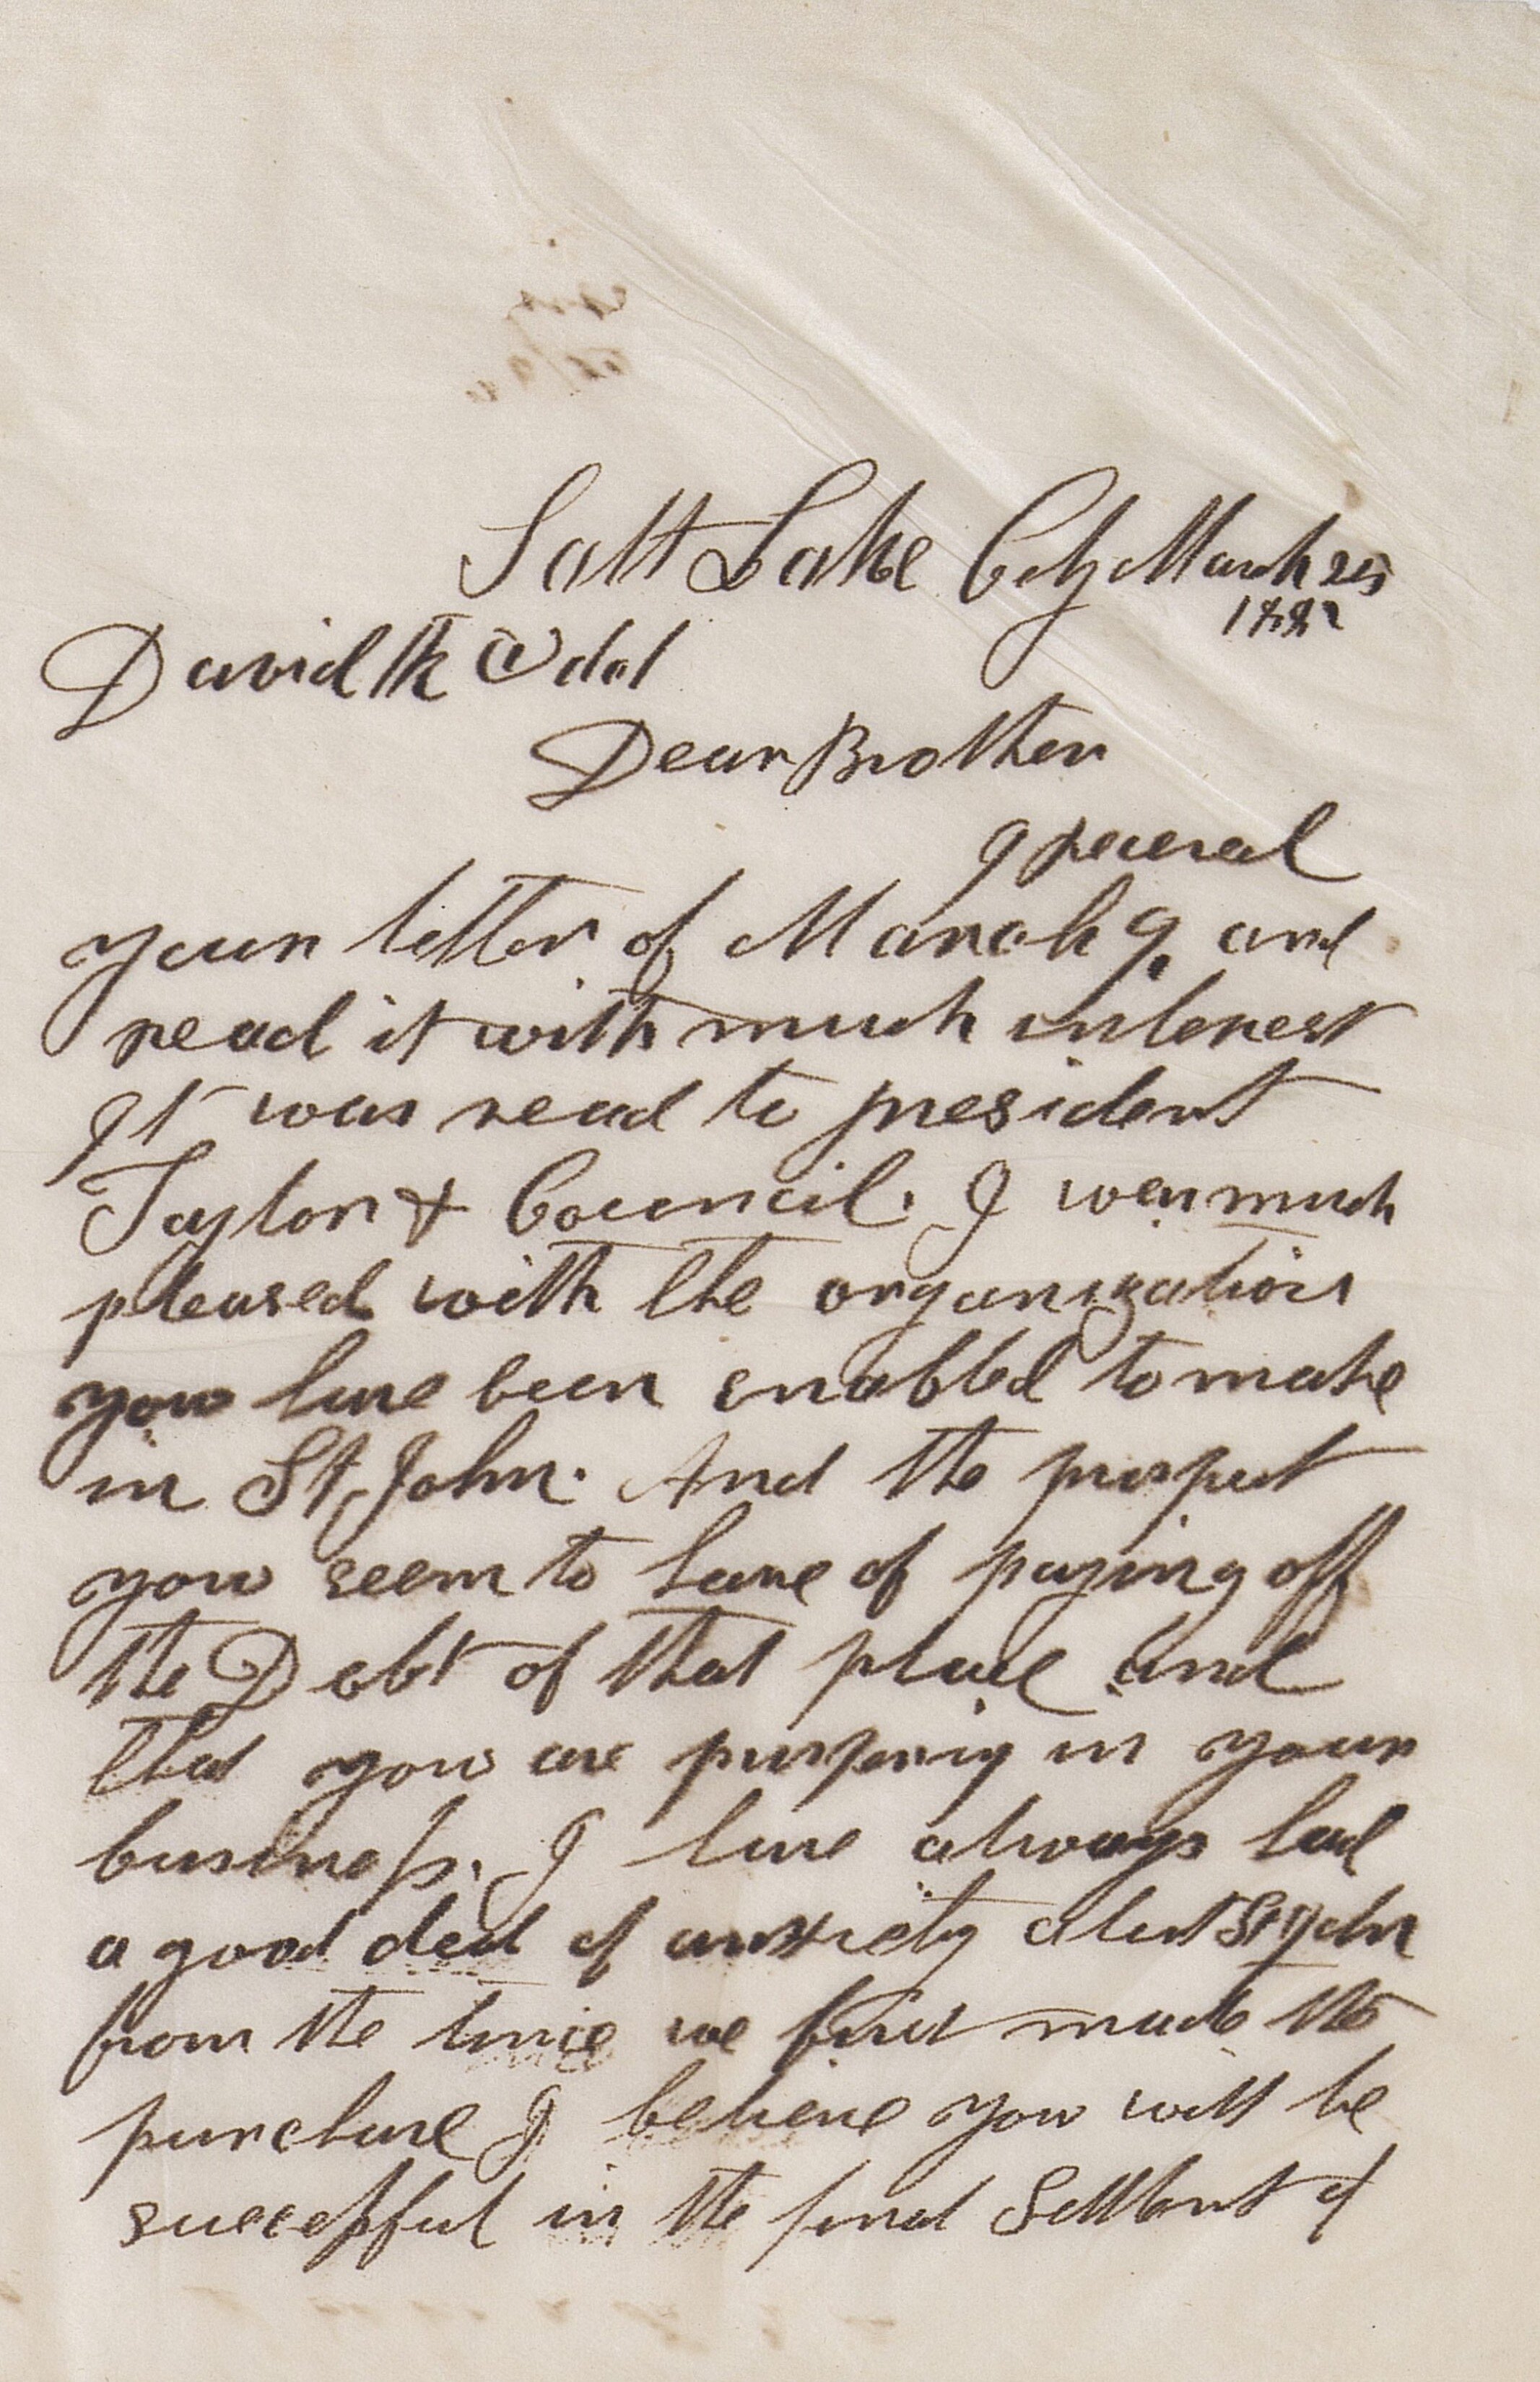 Salt Lake City March 25
1882
David K Udal
Dear Brother
I receved
your letter of March 9. and
read it with much interest
It was read to president
Taylor & Council. I was much
pleased with the organization
you have been enabled to make
in St John. And the prospect
you seem to have of paying off
the Debt of that place and
that you are prospering in your
business. I have always had
a good deal of anxiety about St John
from the time we first made the
purchase I believe you will be
successful in the final Settlement of